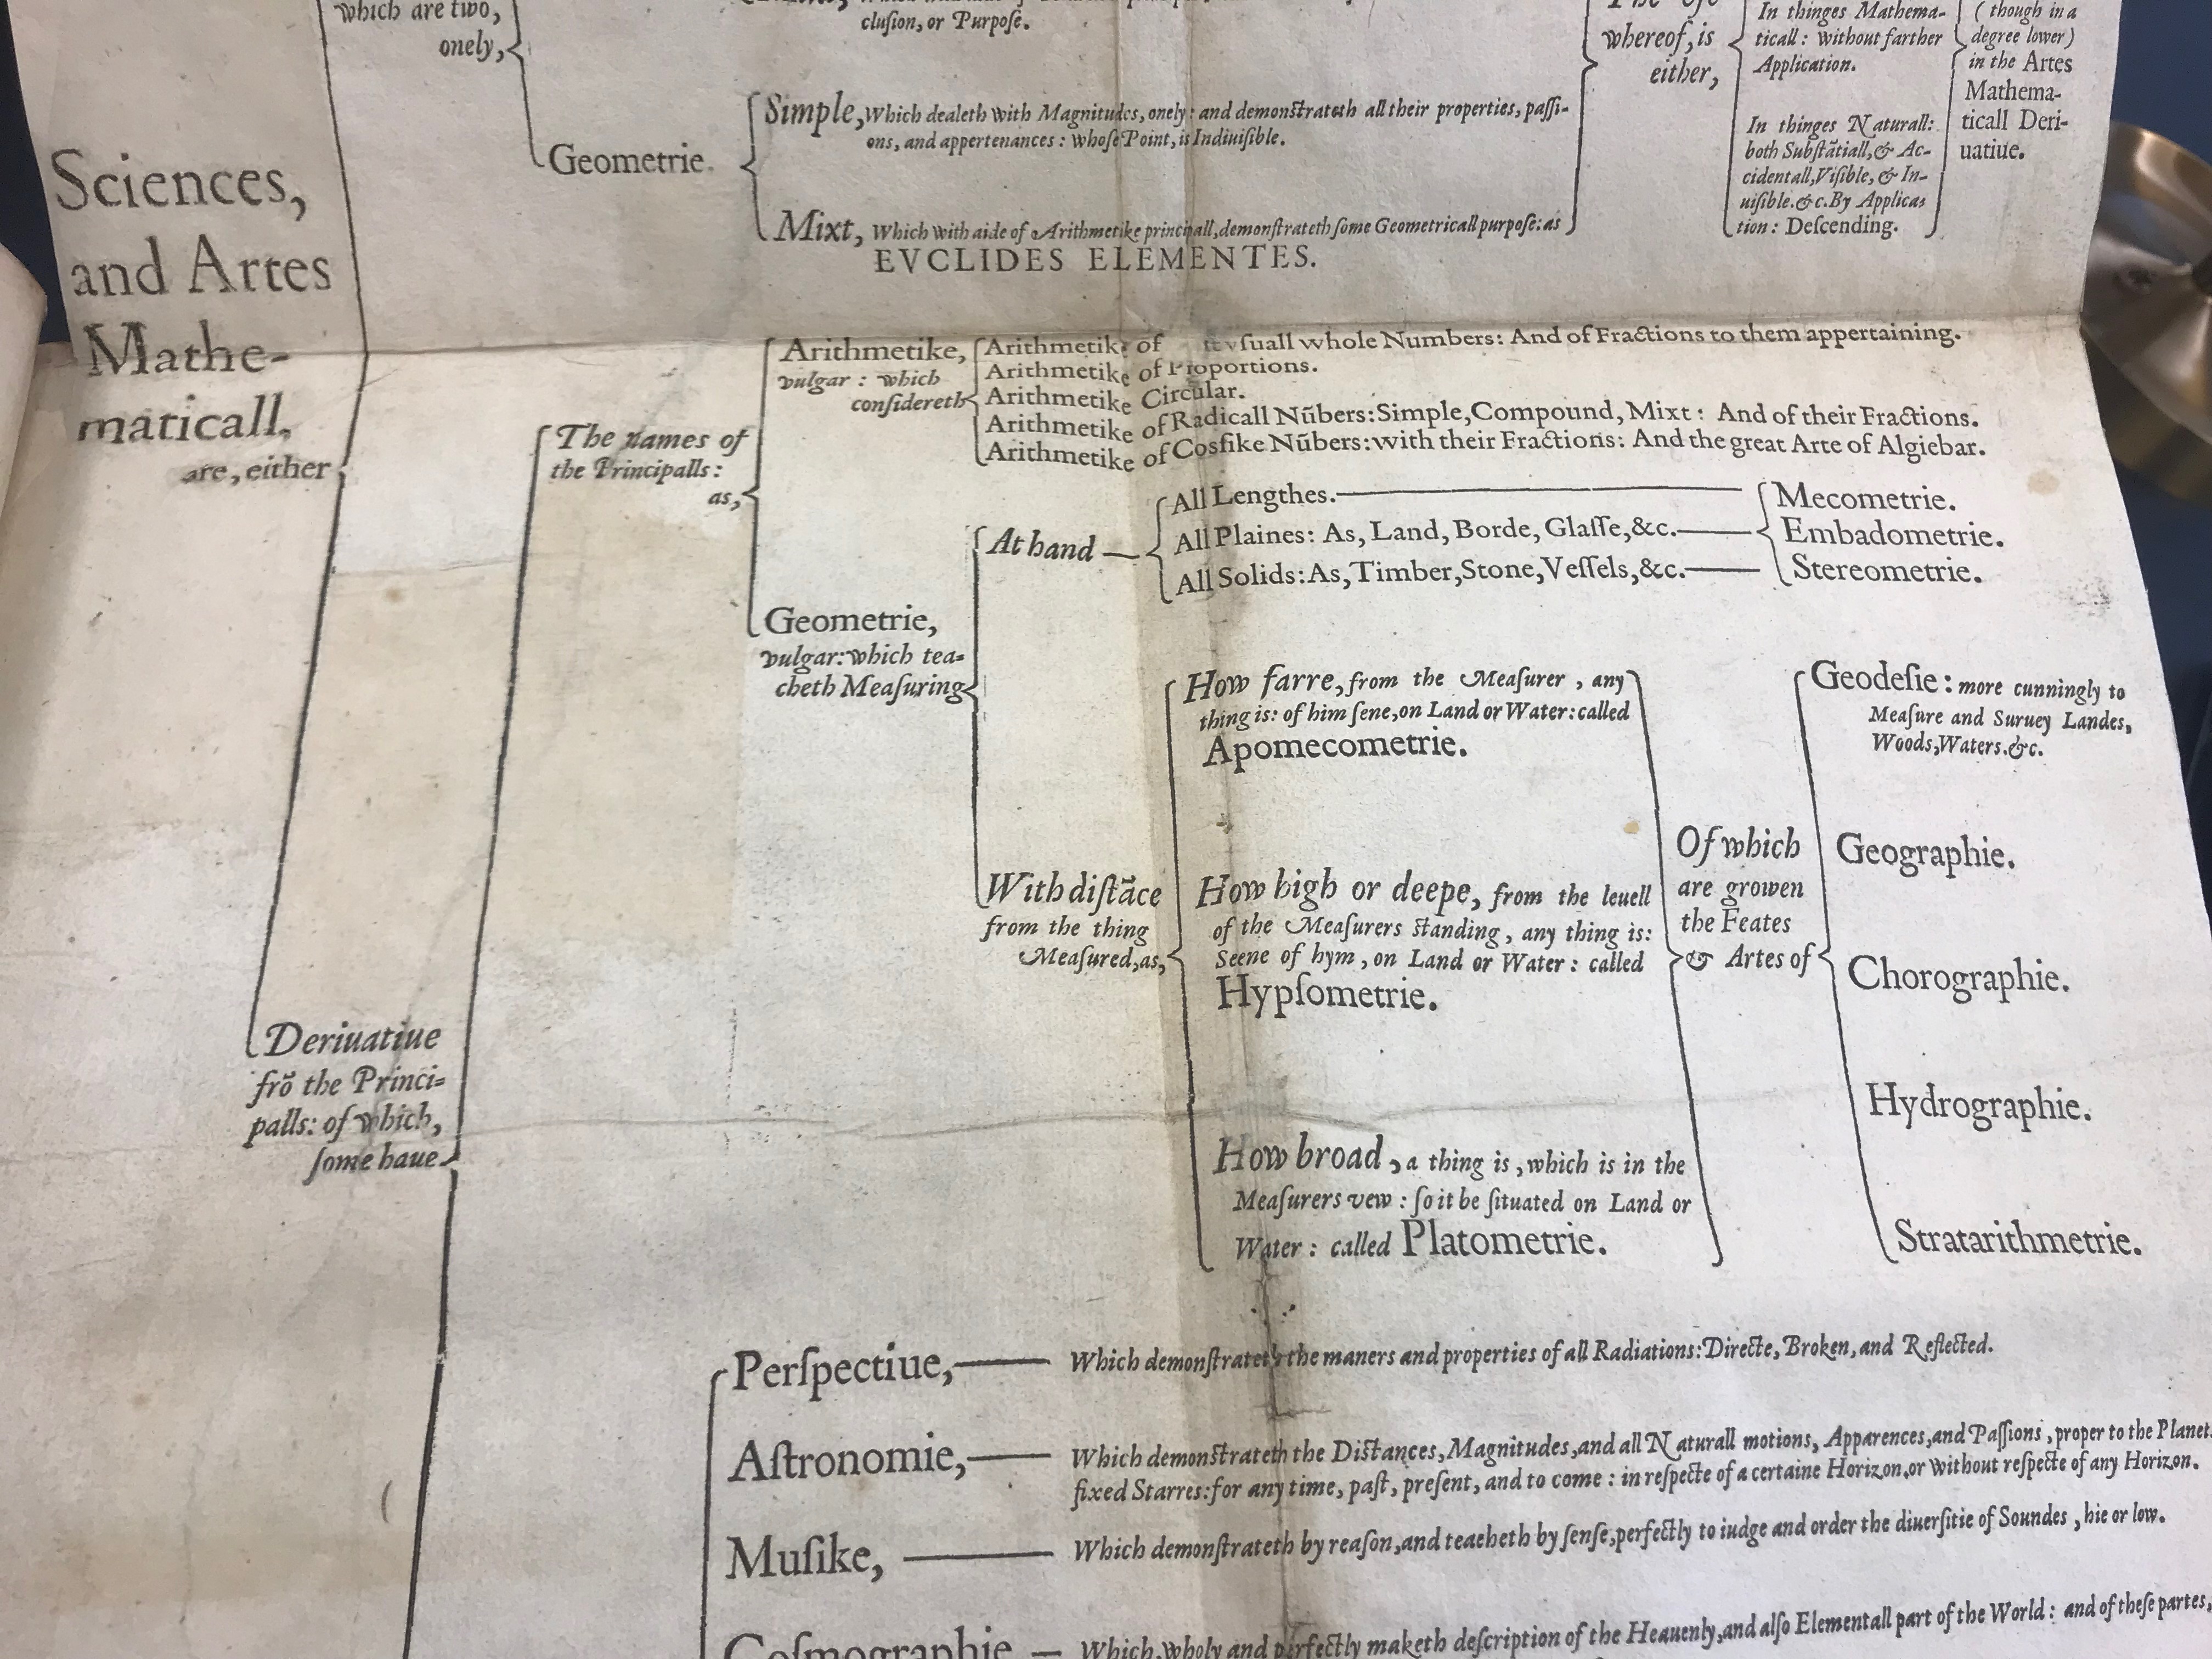 which are two,
onely,
clusion, or Purpose.
Geometrie.
Simple, Which dealeth with Magnitudes, onely: and demonstrateth all their properties, passi-
ons, and appertenances: whose Point, is Indiuisible.
Mixt, Which with aide of Arithmetike principall, demonstrateth some Geometricall purpose: as
EVCLIDES ELEMENTES.
whereof, is
either,
In thinges Mathema-
ticall: without farther
Application.
In thinges Naturall:
both Substãtiall, & Ac-
cidentall, Visible, & In-
uisible. &c. By Applica-
tion: Descending.
(though in a
degree lower)
in the Artes
Mathema-
ticall Deri-
uatiue.
Sciences,
and Artes
Mathe-
maticall,
are, either
Deriuatiue
frõ the Princi-
palls: of which,
some haue
The names of
the Principalls:
as,
Arithmetike,
vulgar: which
considereth
Arithmetike of vsuall whole Numbers: And of Fractions to them appertaining.
Arithmetike of Proportions.
Arithmetike Circular.
Arithmetike of Radicall Nũbers: Simple, Compound, Mixt: And of their Fractions.
Arithmetike of Cossike Nũbers: with their Fractions: And the great Arte of Algiebar.
Geometrie,
vulgar: which tea-
cheth Measuring
At hand
All Lengthes.
All Plaines: As, Land, Borde, Glasse, &c.
All Solids: As, Timber, Stone, Vessels, &c.
Mecometrie.
Embadometrie.
Stereometrie.
With distãce
from the thing
Measured, as,
How farre, from the Measurer, any
thing is: of him sene, on Land or Water: called
Apomecometrie.
How high or deepe, from the leuell
of the Measurers standing, any thing is:
Seene of hym, on Land or Water: called
Hypsometrie.
How broad, a thing is, which is in the
Measurers vew: so it be situated on Land or
Water: called Platometrie.
Of which
are growen
the Feates
& Artes of
Geodesie: more cunningly to
Measure and Suruey Landes,
Woods, Waters. &c.
Geographie.
Chorographie.
Hydrographie.
Stratarithmetrie.
Perspectiue, Which demonstrateth the maners and properties of all Radiations: Directe, Broken, and Reflected.
Astronomie, Which demonstrateth the Distances, Magnitudes, and all Naturall motions, Apparences, and Passions, proper to the
fixed Starres: for any time, past, present, and to come: in respecte of a certaine Horizon, or without respecte of any Horizon.
Musike, Which demonstrateth by reason, and teacheth by sense, perfectly to iudge and order the diuersitie of Soundes, hie or low.
Cosmographie Which, wholy and perfectly maketh description of the Heauenly, and also Elementall part of the World: and of these partes,